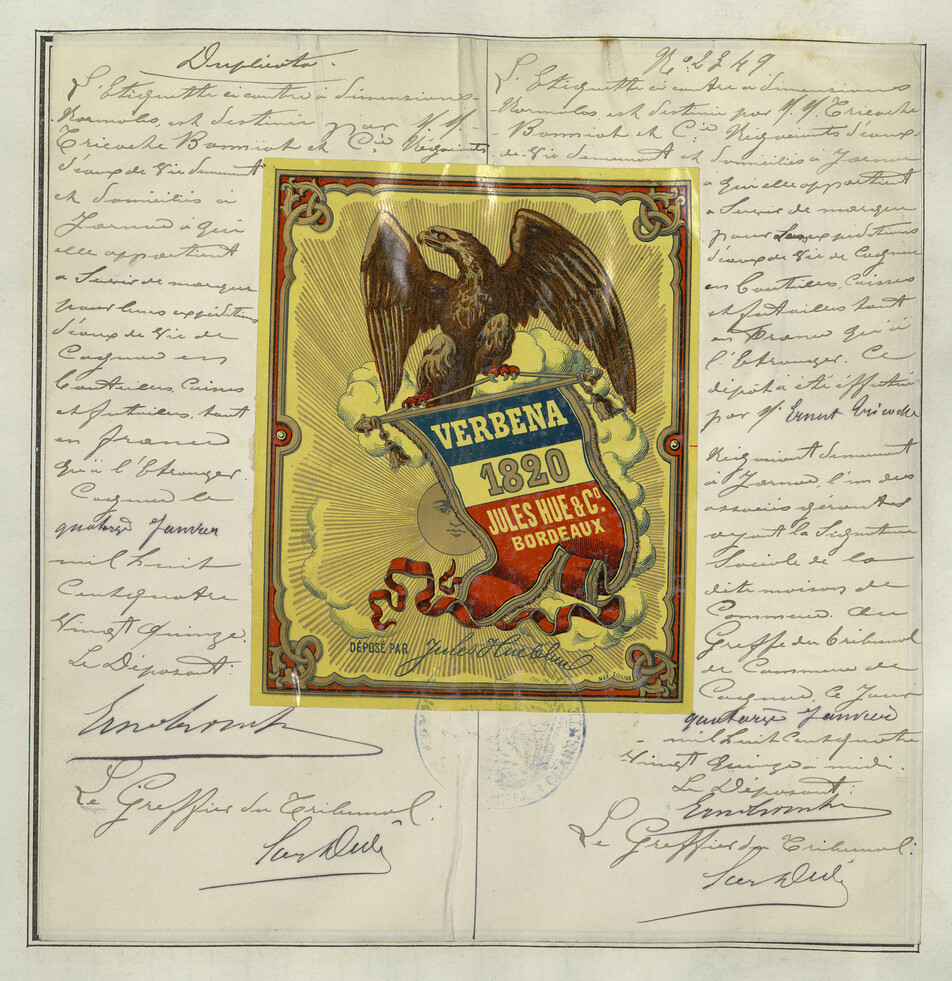 Duplicata.
L'Etiquette ci contre à dimensions
Normales, est destinée par M.M.
Tricoche Bonniot et Cie Négociants
d'eaux de Vie demeurant
et domiciliés à
Jarnac à qui
elle appartient
a Servir de marque
pour leurs expéditions
d'eaux de Vie de
Cognac en
bouteilles, Caisses
et futailles, tant
en France
qu'à l'Etranger.
Cognac le
quatorze Janvier
mil huit
Cent quatre
Vingt Quinze.
Le Déposant.
Le Greffier du Tribunal.
No. 2749
L'Etiquette ci contre à dimensions
Normales est destinée par M.M. Tricoche
Bonniot et Cie Négociants d'eaux
de Vie demeurant et domiciliés à Jarnac
a qui elle appartient
a Servir de marque
pour Les expéditions
d'eaux de Vie de Cognac
en bouteilles, Caisses
et futailles tant
en France qu'à
l'Etranger. Ce
dépôt a été effectué
par M. Ernest Tricoche
Négociant demeurant
à Jarnac, l'un des
associés gérants
ayant la Signature
Sociale de la
dite maison de
Commerce. Au
Greffe du tribunal
de Commerce de
Cognac, Ce Jour
quatorze Janvier
mil huit Cent quatre
Vingt Quinze à midi.
Le Déposant.
Le Greffier du Tribunal.
VERBENA
1820
JULES HUE & Co.
BORDEAUX
DÉPOSÉ PAR